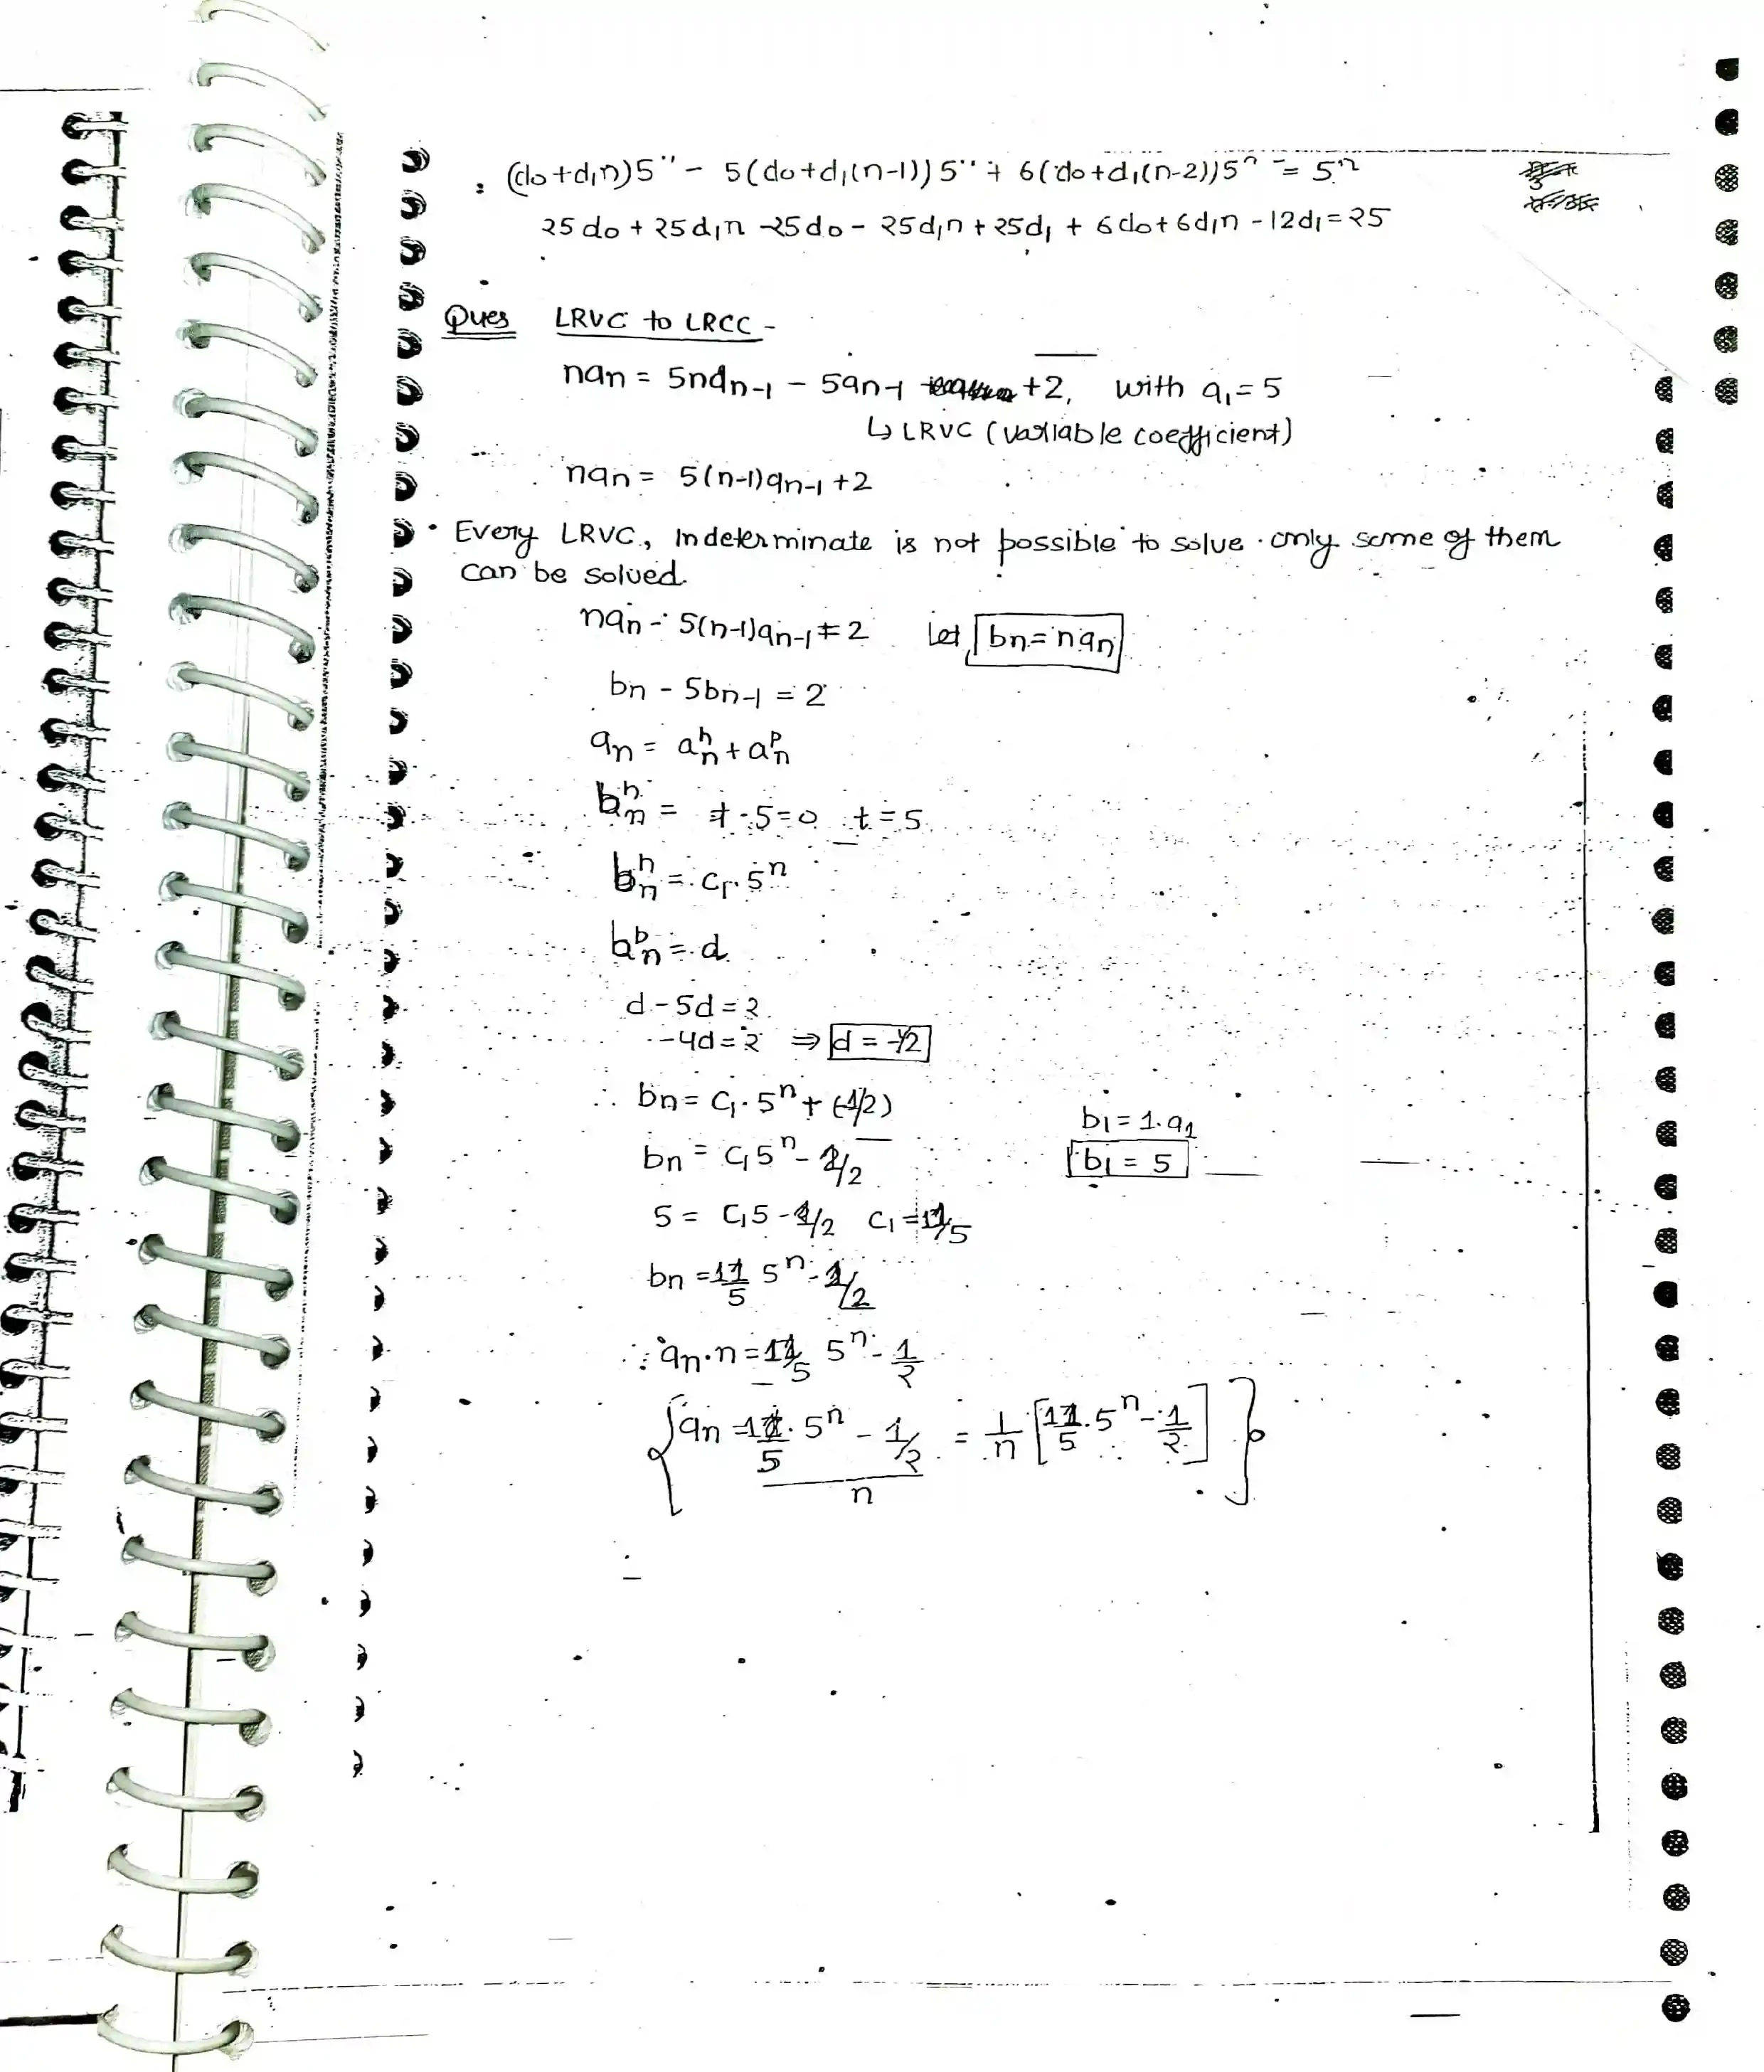 (d₀+d₁n)5ⁿ - 5(d₀+d₁(n-1))5ⁿ + 6(d₀+d₁(n-2))5ⁿ = 5ⁿ
25d₀ + 25d₁n - 25d₀ - 25d₁n + 25d₁ + 6d₀ + 6d₁n - 12d₁ = 25
Ques LRVC to LRCC -
naₙ = 5naₙ₋₁ - 5aₙ₋₁ +2, with a₁ = 5
↳ LRVC (variable coefficient)
naₙ = 5(n-1)aₙ₋₁ +2
• Every LRVC, Indeterminate is not possible to solve. only some of them
can be solved.
naₙ - 5(n-1)aₙ₋₁ = 2 Let bₙ = naₙ
bₙ - 5bₙ₋₁ = 2
aₙ = aₙʰ + aₙᵖ
bₙʰ = t - 5 = 0 t = 5
bₙʰ = c₁. 5ⁿ
bₙᵖ = d
d - 5d = 2
-4d = 2 ⇒ d = -1/2
∴ bₙ = c₁. 5ⁿ + (-1/2)
b₁ = 1. a₁
bₙ = c₁5ⁿ - 1/2
b₁ = 5
5 = c₁5 - 1/2 c₁ = 11/5
bₙ = 11/5 5ⁿ - 1/2
∴ aₙ.n = 11/5 5ⁿ - 1/2
{ aₙ = (11/5 . 5ⁿ - 1/2)/n = 1/n [11/5 . 5ⁿ - 1/2] }